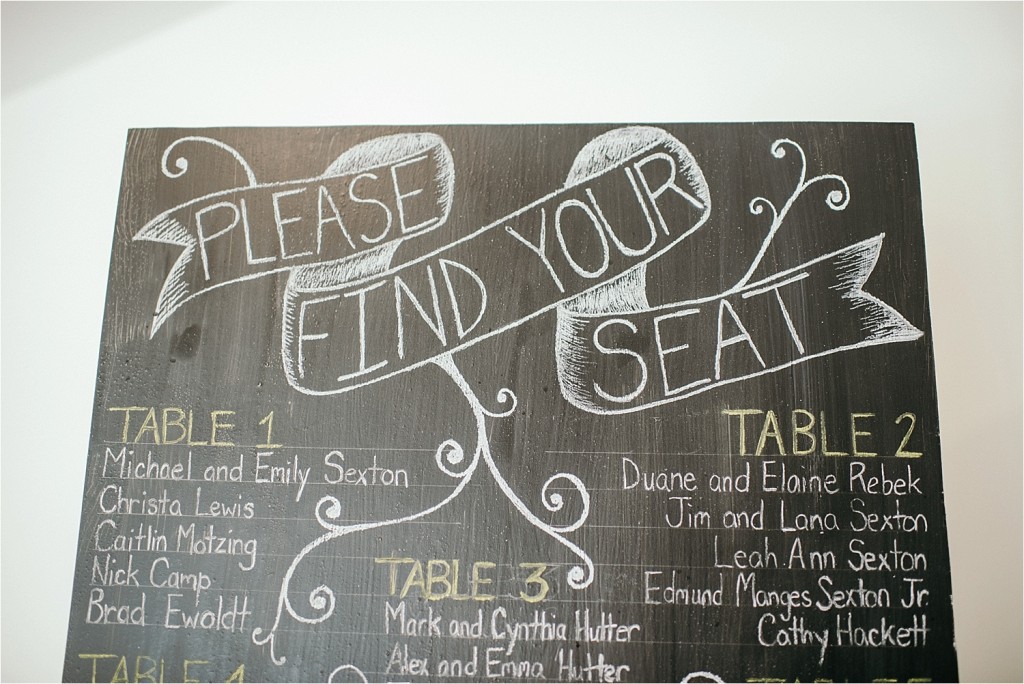 PLEASE
FIND YOUR
SEAT
TABLE 1
Michael and Emily Sexton
Christa Lewis
Caitlin Motzing
Nick Camp
Brad Ewoldt
TABLE 2
Duane and Elaine Rebek
Jim and Lana Sexton
Leah Ann Sexton
Edmund Manges Sexton Jr.
Cathy Hackett
TABLE 3
Mark and Cynthia Hutter
Alex and Emma Hutter
TABLE 4
TABLE